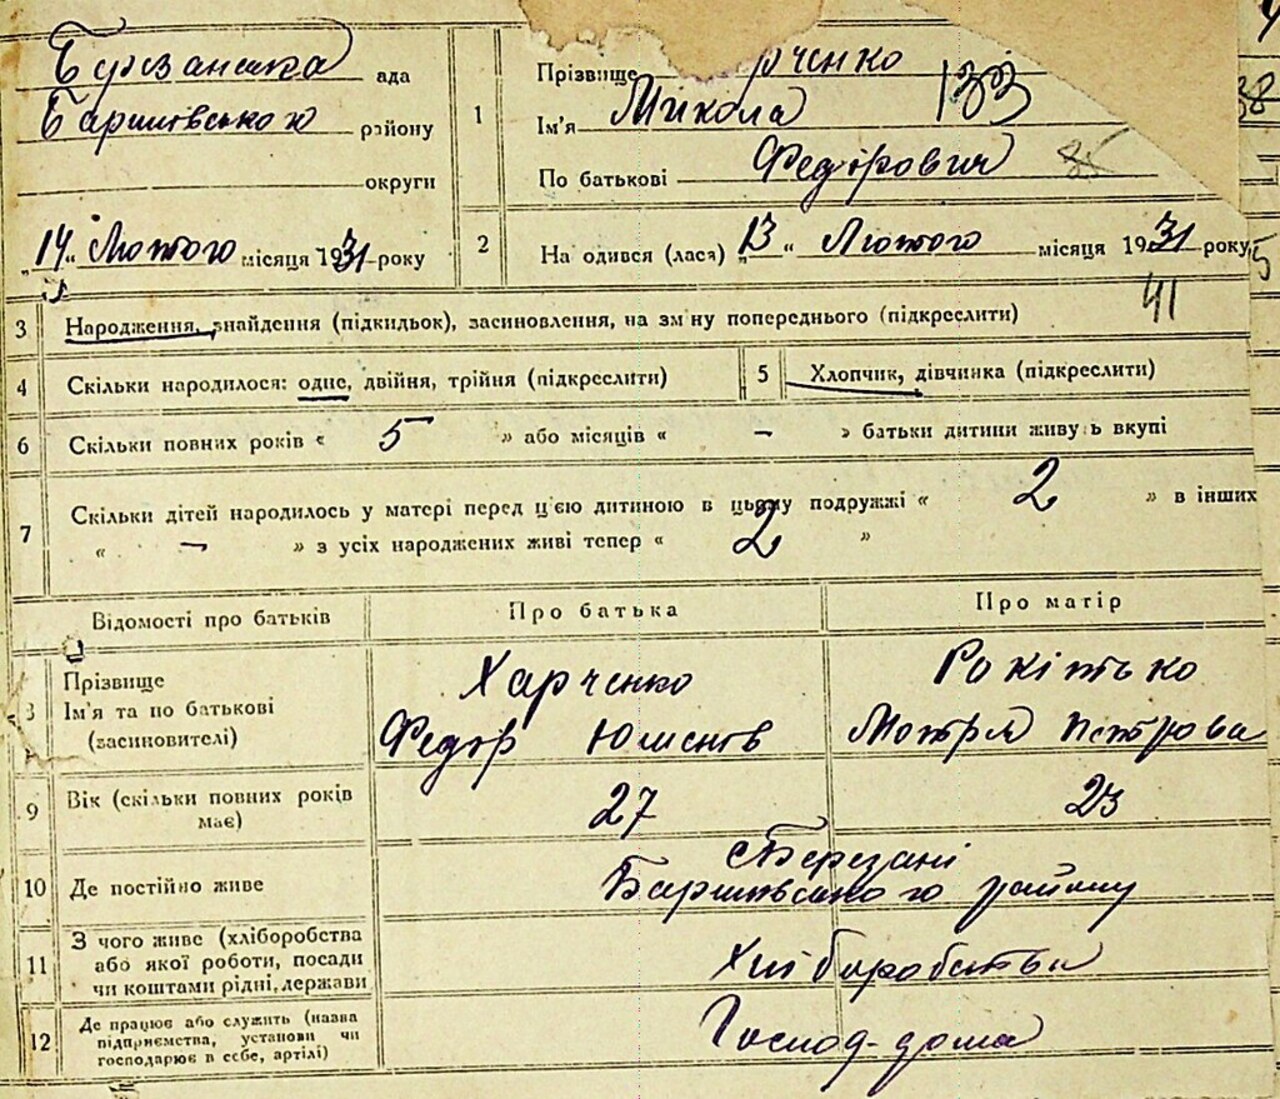 Березанська ада
Баришівського району
округи
„14“ Лютого місяця 1931 року
1 Прізвище рченко
Ім'я Микола 133
По батькові Федорович 85
2 На одився (лася) „13“ Лютого місяця 1931 року
41
3 Народження, знайдення (підкидьок), засиновлення, на зм ну попереднього (підкреслити)
4 Скільки народилося: одне, двійня, трійня (підкреслити)
5 Хлопчик, дівчинка (підкреслити)
6 Скільки повних років « 5 » або місяців « – » батьки дитини живу ь вкупі
7 Скільки дітей народилось у матері перед ц'єю дитиною в цьому подружжі « 2 » в інших
« – » з усіх народжених живі тепер « 2 »
Відомості про батьків Про батька Про матір
8 Прізвище Харченко Рокітько
Ім'я та по батькові Федір Мотря Петрова
(засиновителі)
9 Вік (скільки повних років має) 27 23
10 Де постійно живе с Березані
Баришівського району
11 З чого живе (хліборобства
або якої роботи, посади Хліборобства
чи коштами рідні, держави
12 Де працює або служить (назва
підприємства, установи чи Господ. дома
господарює в себе, артілі)